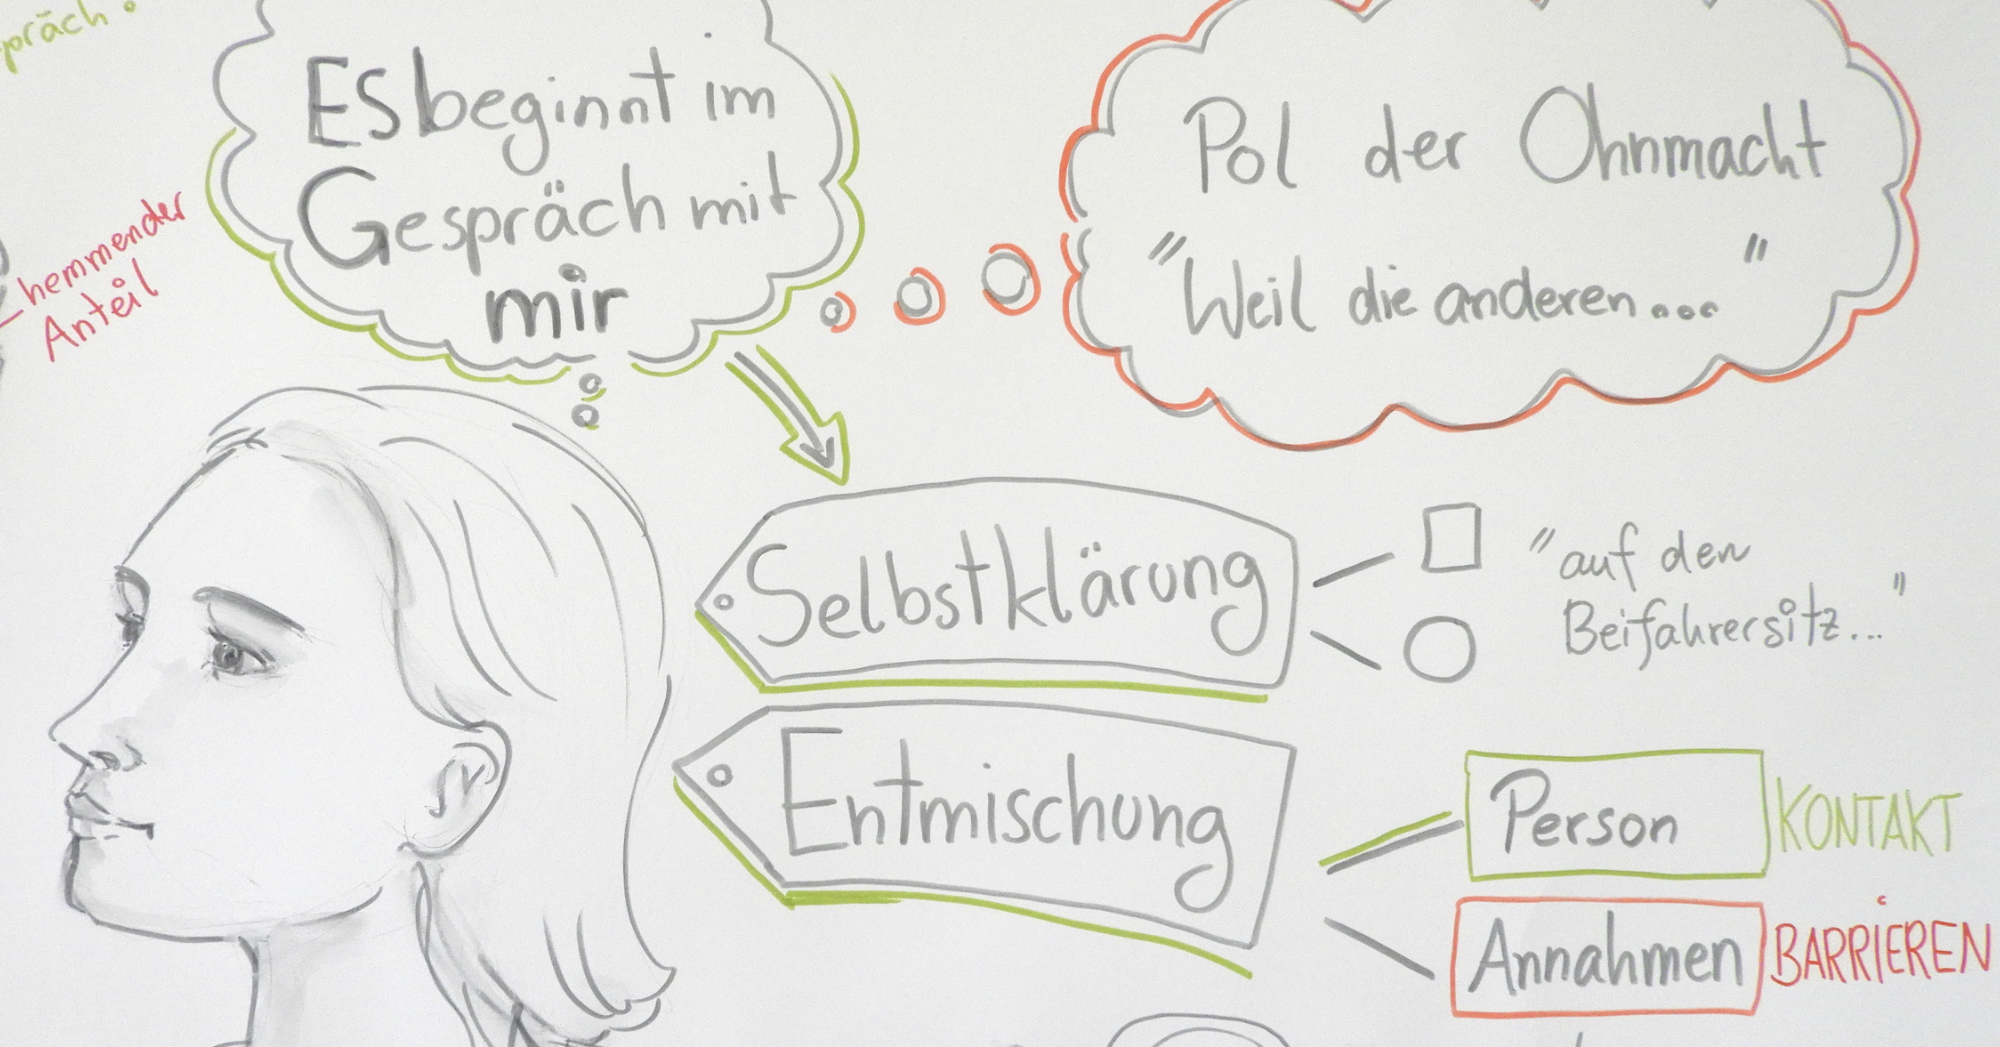 präch.
Es beginnt im
Gespräch mit
mir
hemmender
Anteil
Pol der Ohnmacht
"Weil die anderen..."
Selbstklärung
"auf den
Beifahrersitz..."
Entmischung
Person
KONTAKT
Annahmen
BARRIEREN